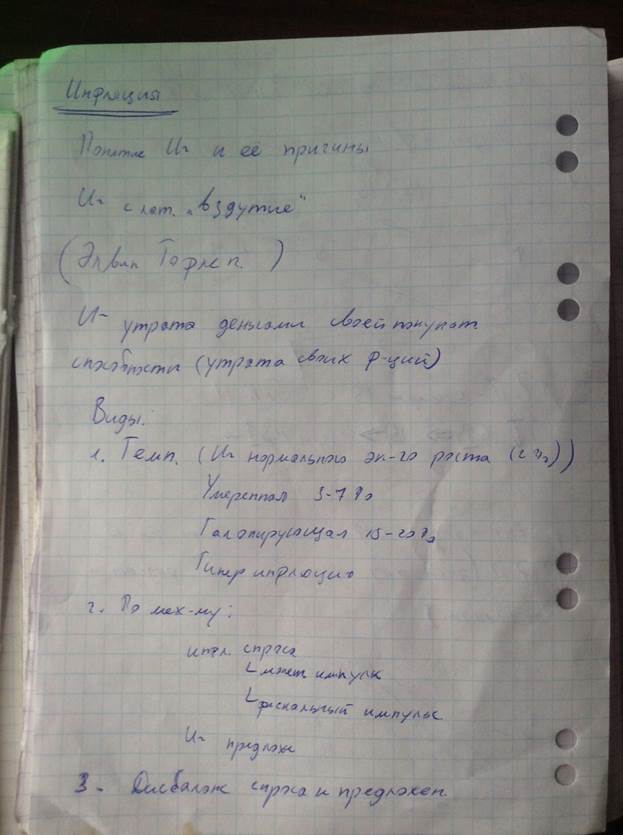 Инфляция
Понятие И- и её причины
И- с лат. „вздутие"
(Элвин Тофлер )
И- утрата деньгами своей покупат
способности (утрата своих ф-ций)
Виды:
1. Темп. (И- нормального эк-го роста (2%))
Умеренная 3-7%
Галопирующая 15-20%
Гиперинфляция
2. По мех-му:
инфл. спроса
монет импульс
фискальный импульс
И- предлож
3- Дисбаланс спроса и предложен